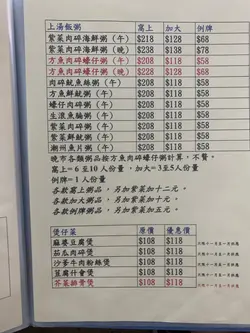 上湯飯粥 窩上 加大 例牌
紫菜肉碎海鮮粥(午) $218 $128 $68
紫菜肉碎海鮮粥(晚) $238 $138 $78
方魚肉碎蠔仔粥(午) $208 $118 $58
方魚肉碎蠔仔粥(晚) $228 $128 $68
肉碎魷魚絲粥(午) $208 $118 $58
方魚鮮魷粥(午) $208 $118 $58
蠔仔肉碎粥(午) $208 $118 $58
生滾魚腩粥(午) $208 $118 $58
紫菜肉碎粥(午) $208 $118 $58
紫菜鮮魷粥(午) $208 $118 $58
潮州魚片粥(午) $208 $118 $58
晚市各類粥品按方魚肉碎蠔仔粥計算,不贅。
窩上=6至10人份量,加大=3至5人份量
例牌=1人份量
各款窩上粥品,另加紫菜加十二元。
各款加大粥品,另加紫菜加十元。
各款例牌粥品,另加紫菜加五元。
煲仔菜 原價 優惠價
麻婆豆腐煲 $108 $118
茄瓜肉碎煲 $108 $118
沙爹牛肉粉絲煲 $108 $118
豆腐什會煲 $108 $118
$108 $118